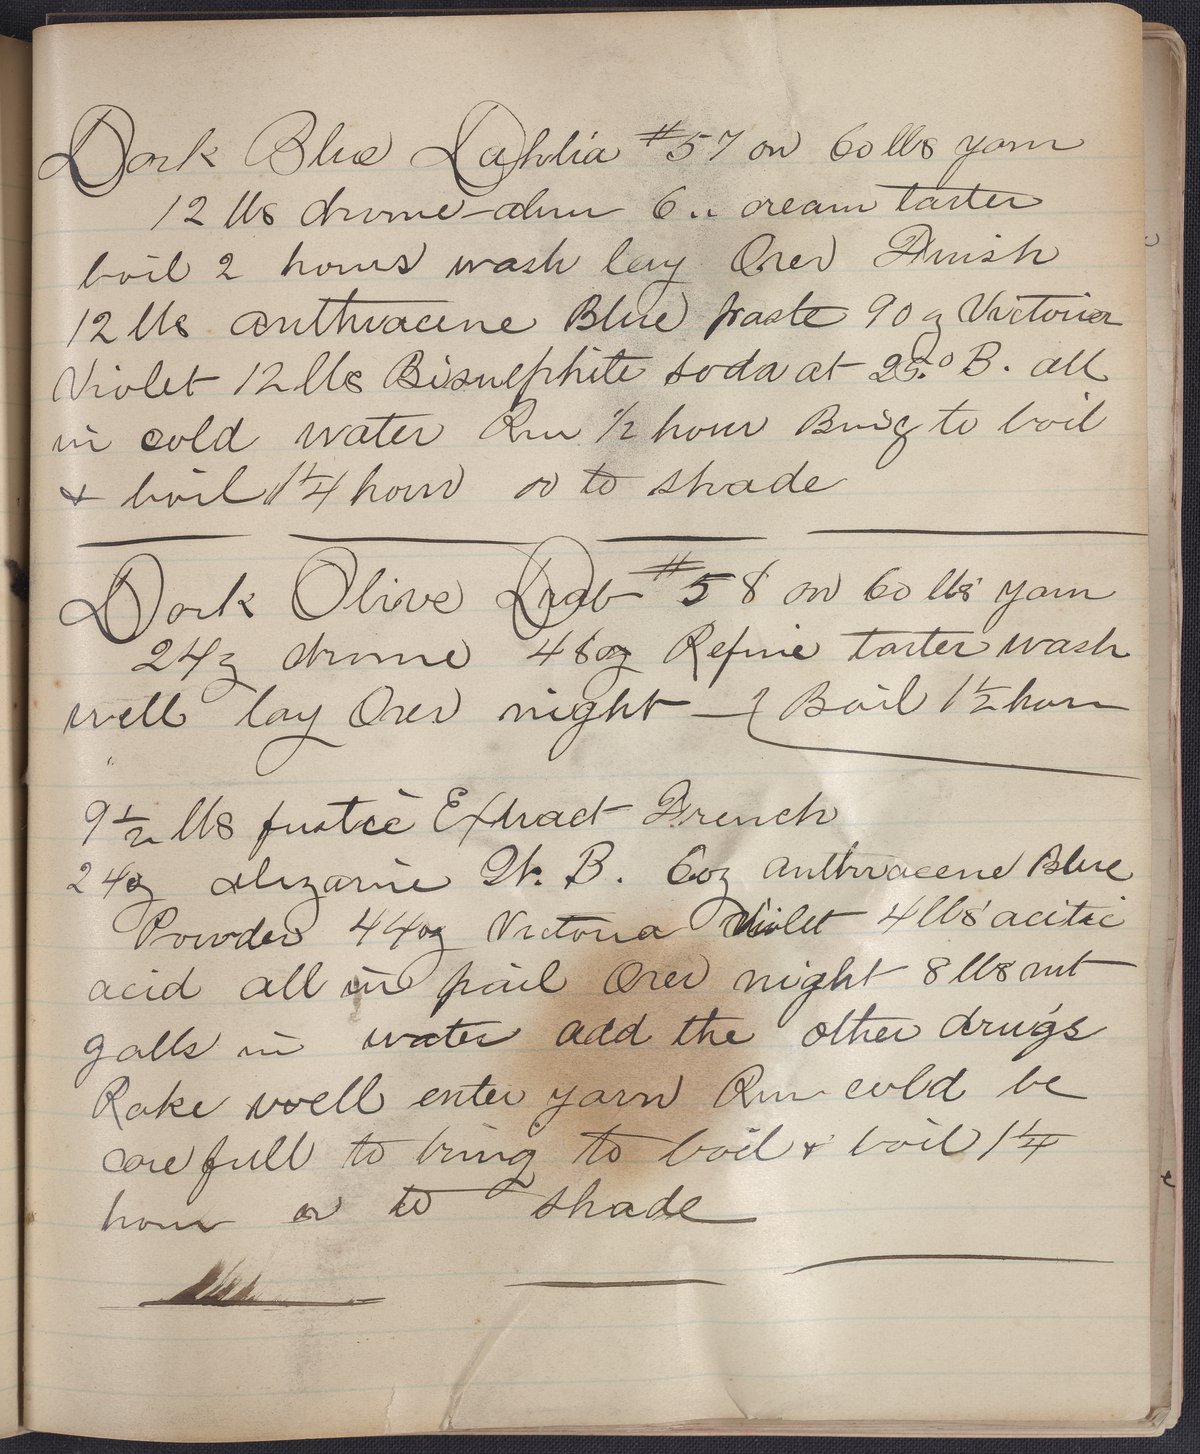 Dark Blue Dahlia #57 on 60 lbs yarn
12 lbs chrome alum 6 " cream tarter
boil 2 hours wash lay Over Finish
12 lbs anthracene Blue paste 90 oz Victoria
Violet 12 lbs Bisulphite soda at 25.° B. all
in cold water Run 1/2 hour Bring to boil
& boil 1 1/4 hour or to shade
Dark Olive Drab #58 on 60 lbs yarn
24 oz chrome 48 oz Refine tarter wash
well lay Over night — { Boil 1 1/2 hour
9 1/2 lbs fustic Extract French
24 oz alizarine W. B. 6 oz anthracene Blue
Powder 44 oz Victoria Violet 4 lbs acitic
acid all in pail Over night 8 lbs nut
galls in water add the other drugs
Rake well enter yarn Run cold be
care full to bring to boil & boil 1 1/4
hour or to shade